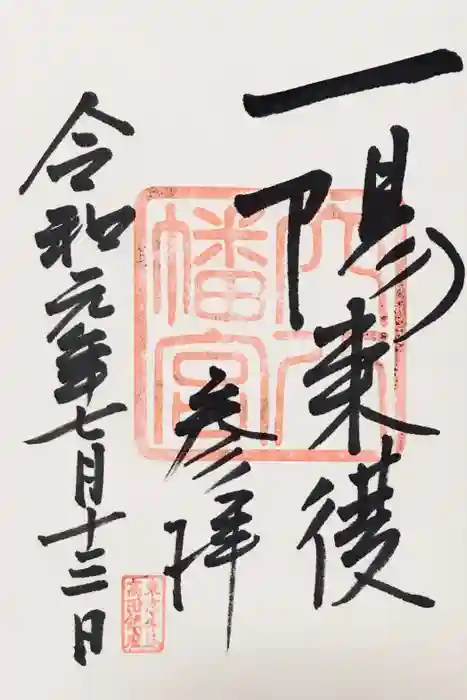 一陽来復
穴八幡宮
参拝
令和元年七月十三日